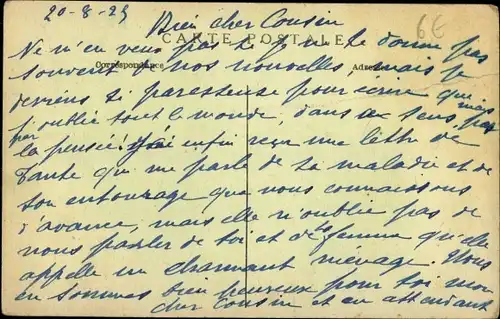 20-8-25
6€
Bien cher Cousin
CARTE POSTALE
Ne m'en veux pas si je ne te donne pas
Correspondance
souvent de nos nouvelles mais je
deviens si paresseuse pour écrire que
j'oublie tout le monde, dans un sens, mais pas
par
la pensée! J'ai enfin reçu une lettre de
Tante qui me parle de sa maladie et de
son entourage que nous connaissons
d'avance, mais elle n'oublie pas de
nous parler de toi et de ta femme qu'elle
appelle un charmant ménage. Nous
en sommes bien heureux pour toi mon
cher Cousin et en attendant